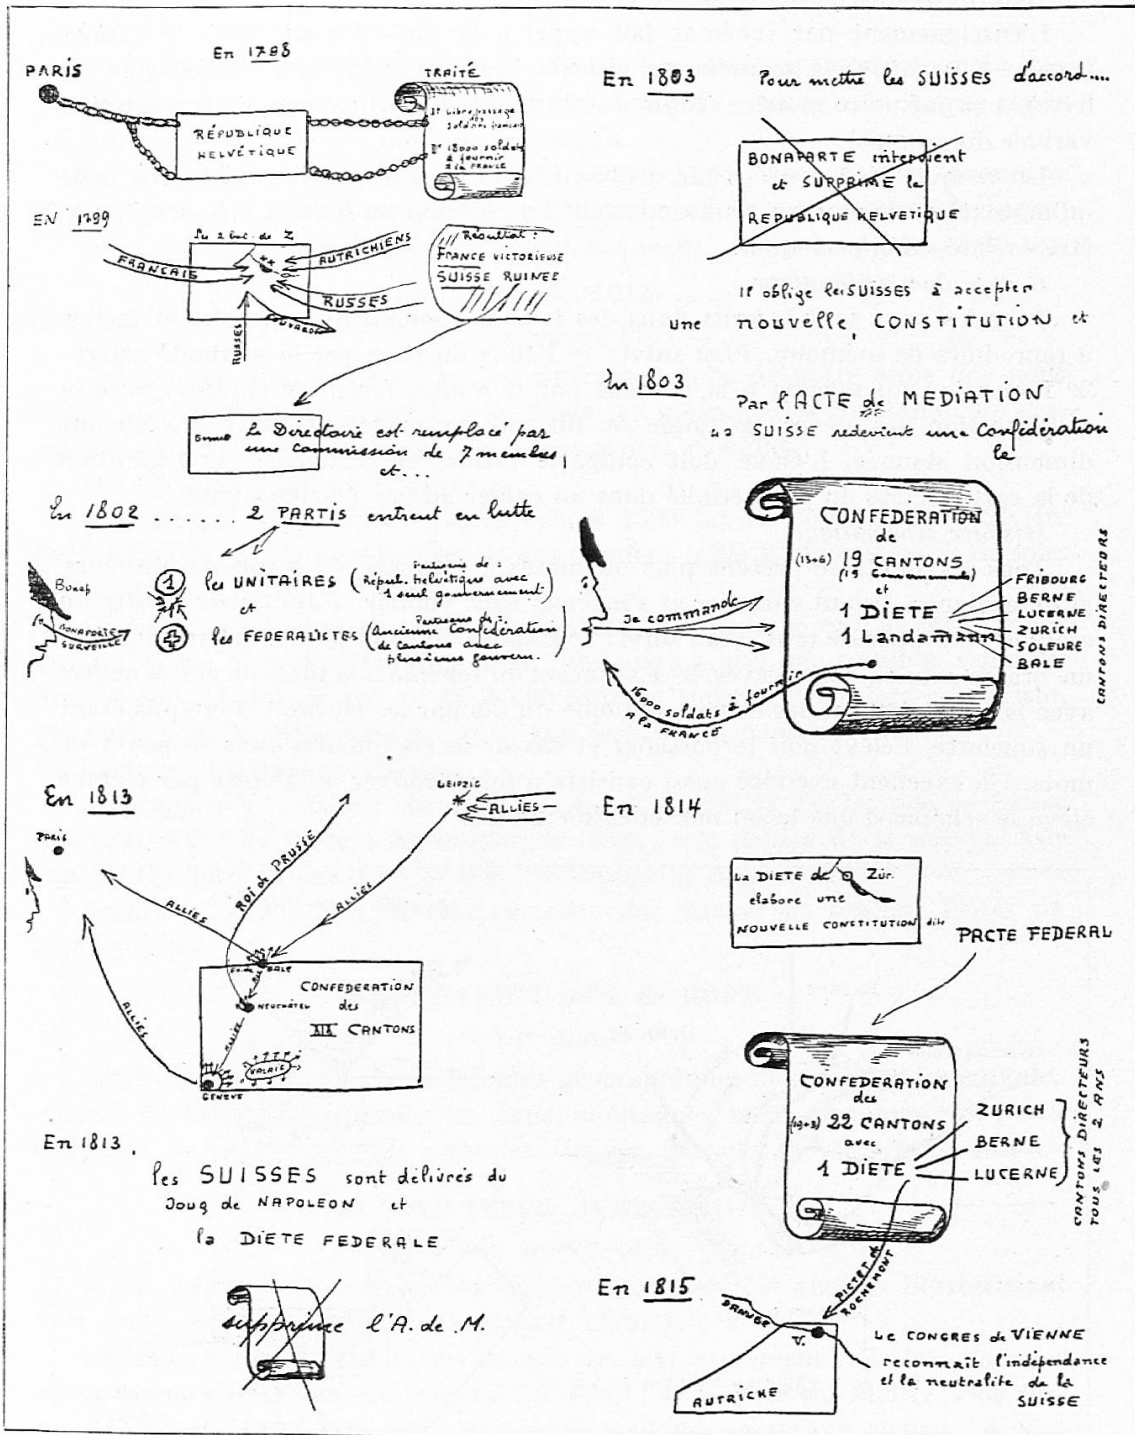 En 1798
PARIS
RÉPUBLIQUE
HELVÉTIQUE
TRAITÉ
1° Libre passage
des
soldats français
2° 18000 soldats
à fournir
à la FRANCE
EN 1799
Les 2 bat. de Z
FRANCAIS
AUTRICHIENS
RUSSES
RUSSES
SOUVAROF
Résultat :
FRANCE VICTORIEUSE
SUISSE RUINEE
Le Directoire est remplacé par
une Commission de 7 membres
et...
En 1802 ...... 2 PARTIS entrent en lutte
Bonap
BONAPARTE
SURVEILLE
1 les UNITAIRES (Partisans de :
Républ. helvétique avec
1 seul gouvernement)
et
les FEDERALISTES (Partisans de :
Ancienne Confédération
de Cantons avec
plusieurs gouvern.)
En 1803 Pour mettre les SUISSES d'accord....
BONAPARTE intervient
et SUPPRIME la
REPUBLIQUE HELVETIQUE
Il oblige les SUISSES à accepter
une nouvelle CONSTITUTION et
En 1803
Par l'ACTE de MEDIATION
la SUISSE redevient une Confédération
la
CONFEDERATION
de
(13+6) 19 CANTONS
(19 Gouvernements)
et
1 DIETE
1 Landamann
FRIBOURG
BERNE
LUCERNE
ZURICH
SOLEURE
BALE
CANTONS DIRECTEURS
Je commande
16000 soldats à fournir
A la FRANCE
En 1813
PARIS
LEIPZIG
ALLIES
ROI de PRUSSE
ALLIES
ALLIES
ALLIES
BALE
NEUCHÂTEL
ALLIES
VALAIS
GENEVE
CONFEDERATION
des
XIX CANTONS
En 1813.
les SUISSES sont délivrés du
Joug de NAPOLEON et
la DIETE FEDERALE
supprime l'A. de M.
En 1814
La DIETE de Zür.
elabore une
NOUVELLE CONSTITUTION dite
PACTE FEDERAL
CONFEDERATION
des
(19+3) 22 CANTONS
avec
1 DIETE
ZURICH
BERNE
LUCERNE
CANTONS DIRECTEURS
TOUS LES 2 ANS
PICTET de
ROCHEMONT
En 1815
DANUBE
V.
AUTRICHE
LE CONGRES de VIENNE
reconnaît l'indépendance
et la neutralité de la
SUISSE